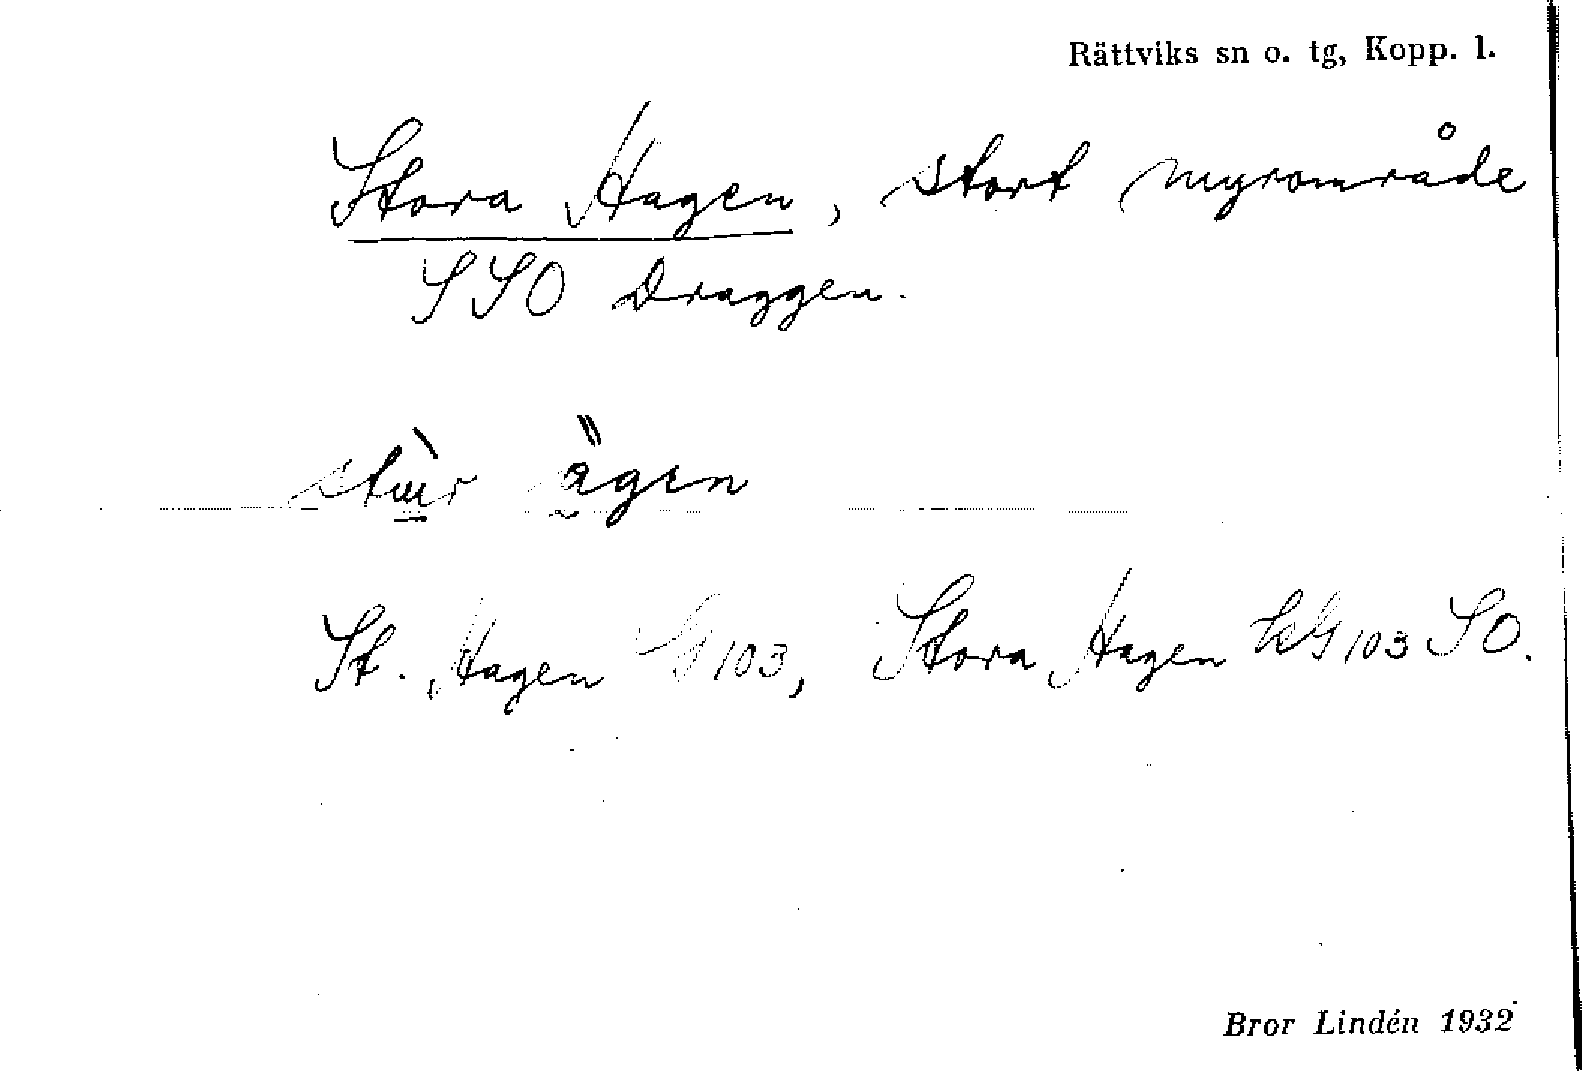 Rättviks sn o. tg, Kopp. l.
Stora Hagen, stort myrområde
SSO Draggen.
ägen
St. Hagen G 103, Stora Hagen kG 103 SO.
Bror Lindén 1932